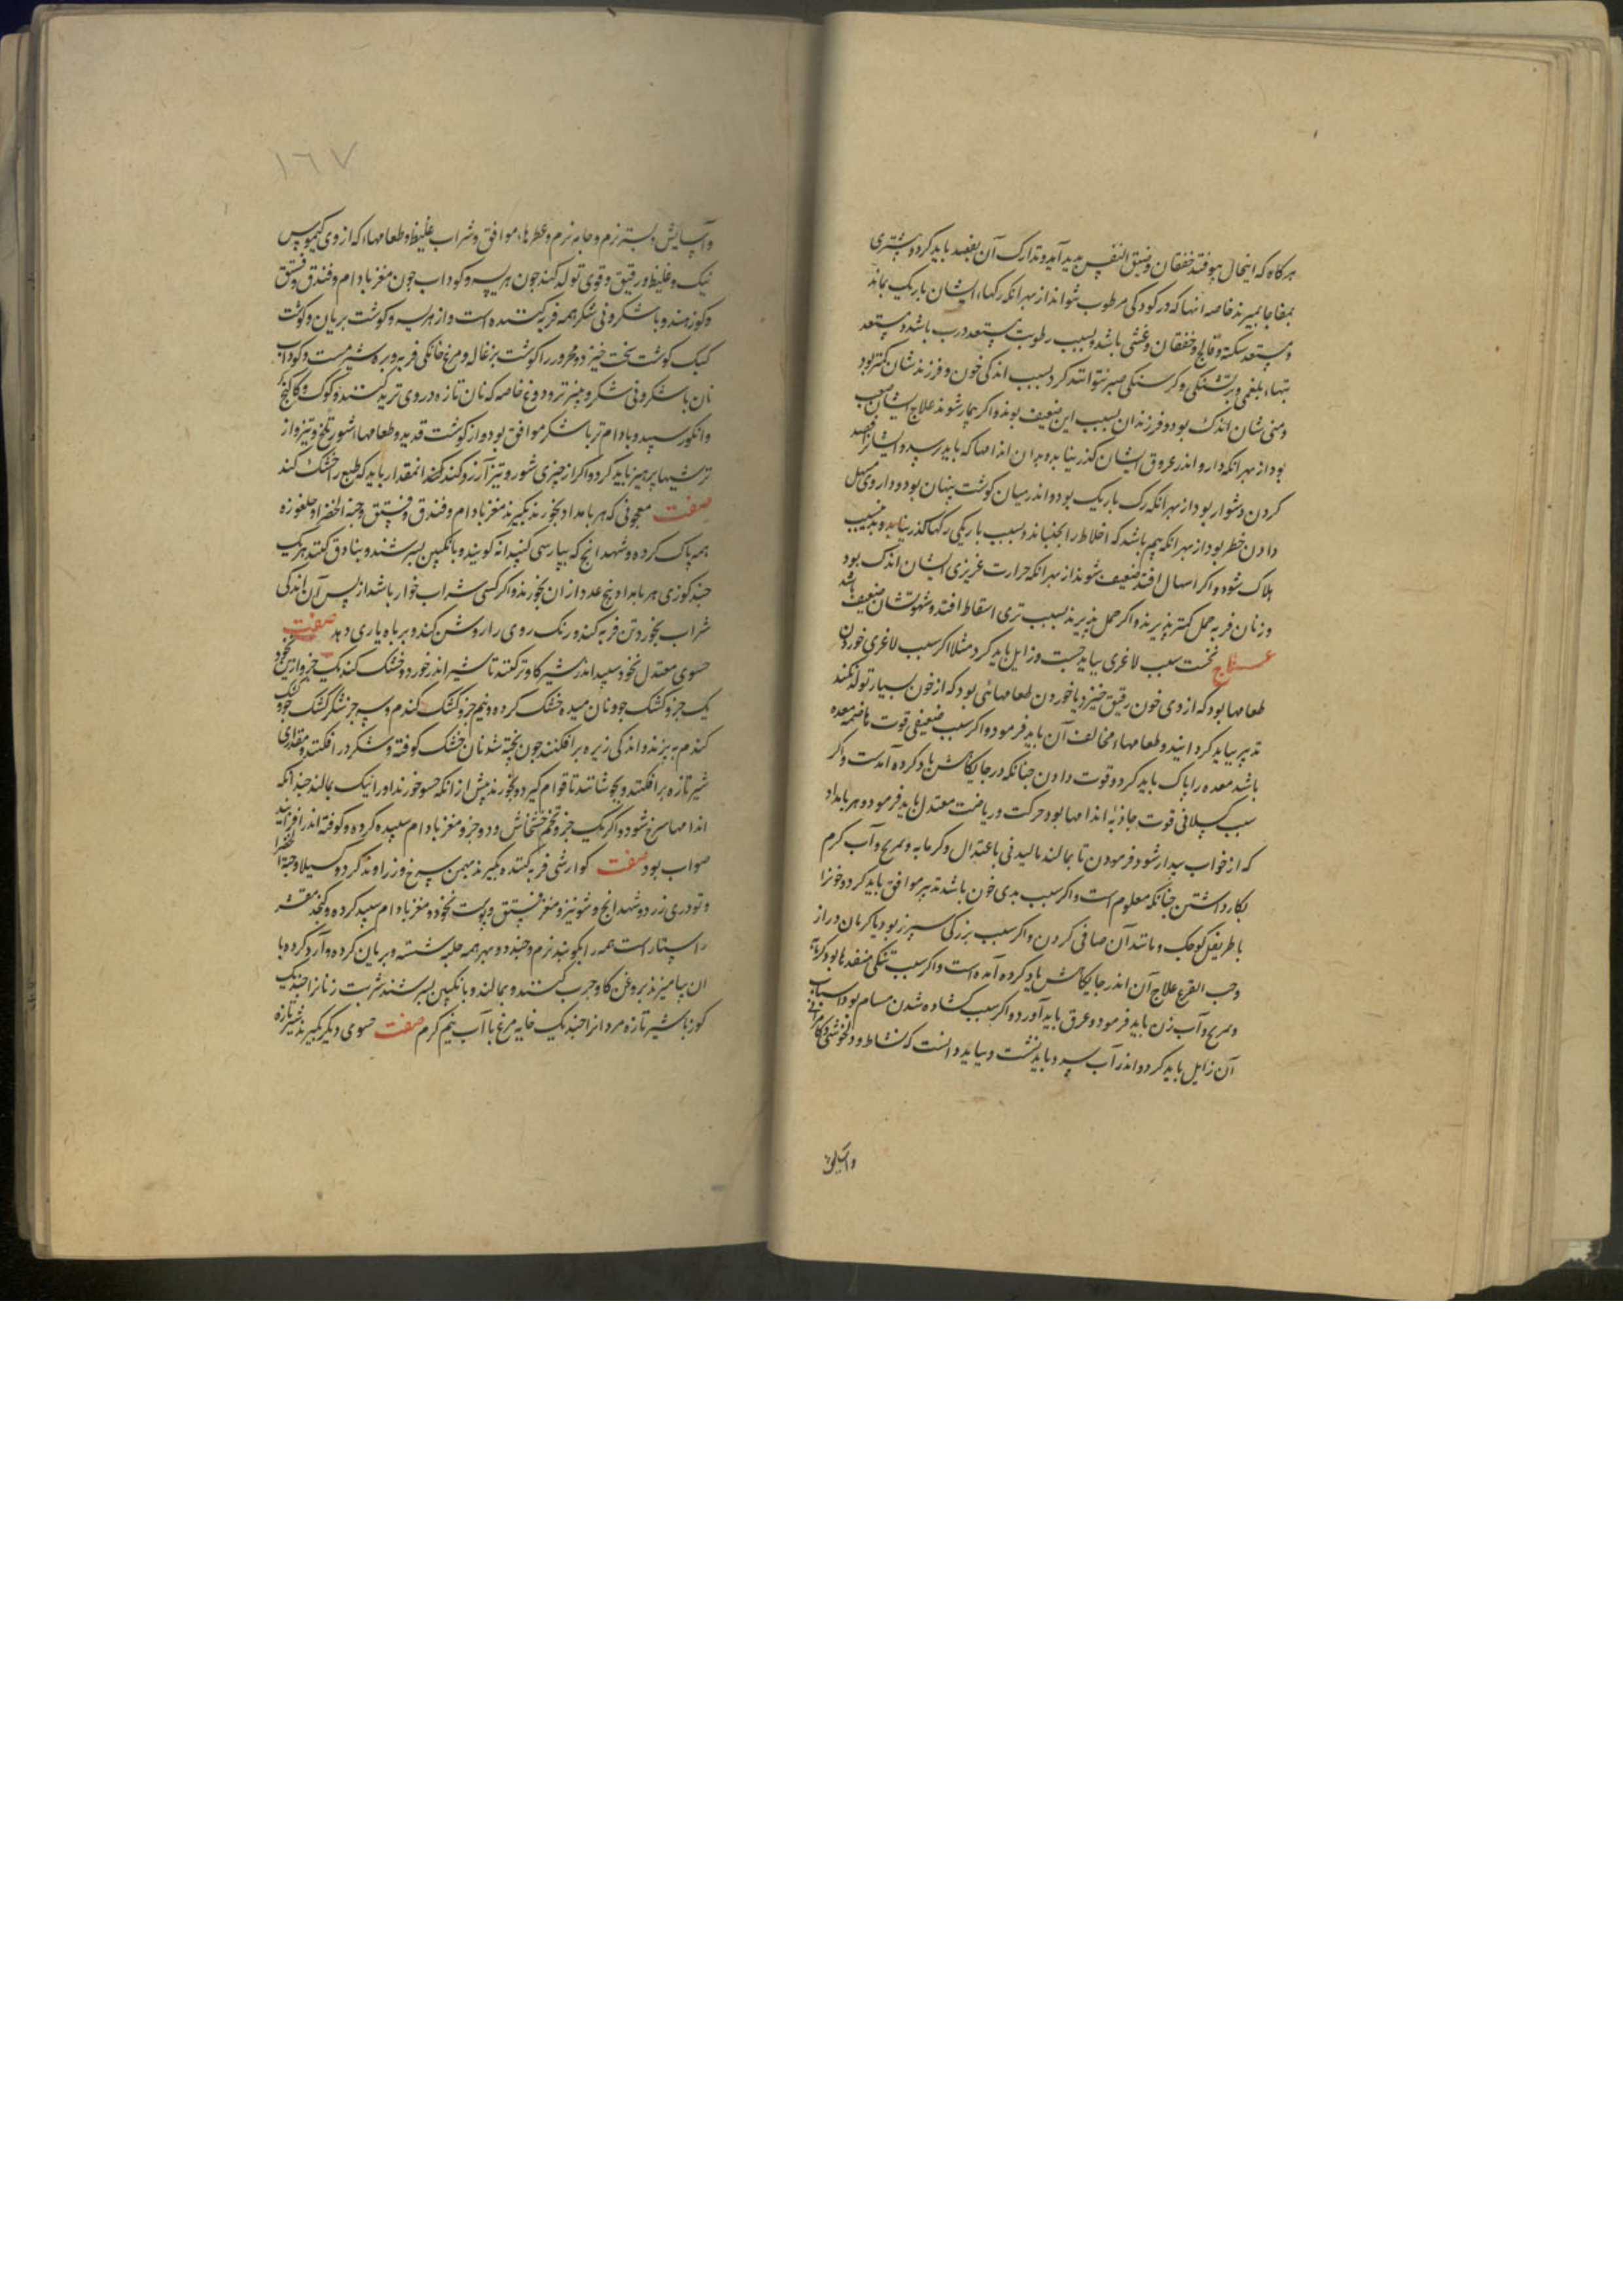 هرگاه که این حال بیوفتد خفقان و ضیق النفس پدید آید و تدارک آن بفصد باید کرد و بیشتری
بمفاجا بمیرند خاصه انها که در کودکی مرطوب شوند از بهر انکه رکهاء ایشان باریک بماند
و مستعد سکته و فالج و خفقان و غشی باشد و بسبب رطوبت مستعد درب باشد و مستعد
تبهاء بلغمی و بر تشنکی و کرسنکی صبر نتوانند کرد بسبب اندکی خون و فرزندشان کمتر بود
و منی شان اندک بود و فرزندان بسبب این ضعیف بوند و اکر بیمار شوند علاج ایشان صعب
بود از بهر انکه دارو اندر عروق ایشان کذر نیابد و بدان اندامها که باید رسد و ایشانرا فصد
کردن دشوار بود از بهر انکه رک باریک بود و اندر میان کوشت پنهان بود و داروی مسهل
دادن خطر بود از بهر انکه بیم باشد که اخلاط را بجنباند و بسبب باریکی رکها کذر نیابد و بدین سبب
هلاک شود و اکر اسهال افتد ضعیف شوند از بهر انکه حرارت غریزی ایشان اندک بود
و زنان فربه حمل کمتر پذیرند و اکر حمل پذیرند بسبب تری اسقاط افتد و شهوتشان ضعیف باشد
علاج نخست سبب لاغری بباید جست و زایل باید کرد مثلا اکر سبب لاغری خوردن
طعامها بود که از وی خون رقیق خیزد یا خوردن طعامهائی بود که از خون بسیار تولد نکند
تدبیر بباید کردانید و طعامهاء مخالف آن باید فرمود و اکر سبب ضعیفی قوت هاضمه معده
باشد معده را پاک باید کرد و قوت دادن چنانکه در جایکاهش یاد کرده آمدست و اکر
سبب کسلانی قوت جاذبه اندامها بود حرکت و ریاضت معتدل باید فرمود و هر بامداد
که از خواب بیدار شود فرمودن تا بمالند مالیدنی باعتدال و کرمابه و تمریخ و آب کرم
بکار داشتن چنانکه معلوم است و اکر سبب بدی خون باشد تدبیر موافق باید کرد و خونرا
باطریفل کوچک و مانند آن صافی کردن و اکر سبب بزرکی سپرز بود یا کرمان دراز
و حب القرع علاج آن اندر جایکاهش یاد کرده آمده است و اکر سبب تنکی منفذها بود کرمابه
و تمریخ و آب زن باید فرمود و عرق باید آورد و اکر سبب کشاده شدن مسام بود اسباب
آن زایل باید کرد و اندر آب سرد باید نشست و بباید دانست که نشاط و دلخوشی و کامرانی
و آسایش
١٦٧
و آسایش و بستر نرم و جامه نرم و عطرهاء موافق و شراب غلیظ و طعامهاء که از وی کیموس
نیک و غلیظ و رقیق و قوی تولد کند چون هریسه و کوداب چون مغز بادام و فندق و فستق
و کوز هند و با شکر و بی شکر همه فربه کننده است و از هریسه و کوشت بریان و کوشت
کبک کوشت سخت خیزد و محرور را کوشت بزغاله و مرغ خانکی فربه و بره شیر مست و کوداب
نان با شکر و بی شکر و پنیر تر و دوغ خاصه که نان تازه در وی ترید کنند و کوک و کاکنج
و انکور سپید و بادام تر با شکر موافق بود و از کوشت قدید و طعامهاء شور و تلخ و تیز و از
ترشیها پرهیز باید کرد و اکر از چیزی شور و تیز آرزو کند کند انمقدار باید که طبع را خشک کند
صفت معجونی که هر بامداد بخورند بکیرند مغز بادام و فندق و فستق و حبة الخضرا و جلغوزه
همه پاک کرده و شهدانج که بپارسی کنیدانه کویند و بانکبین بسرشند و بنادق کنند هر یک
چند کوزی هر بامداد پنج عدد از ان بخورند و اکر کسی شراب خوار باشد از پس آن اندکی
شراب بخورد تن فربه کند و رنک روی را روشن کند و بر باه یاری دهد صفت
حسوی معتدل نخود سپید اندر شیر کاو تر کنند تا شیر اندر خورد و خشک کنند یک جزو ازین نخود
یک جزو کشک جو و نان میده خشک کرده و نیم جزو کشک کندم و سه جز شکر کشک جو و کشک
کندم بپزند و اندکی زیره برافکنند چون پخته شد نان خشک کوفته و شکر درافکنند و مقداری
شیر تازه برافکنند و بجوشانند تا قوام کیرد و بخورند پیش از انکه حسو خورند او را نیک بمالند چندانکه
اندامها سرخ شود و اکر یک جزو تخم خشخاش و دو جزو مغز بادام سپیده کرده و کوفته اندر افزایند
صواب بود صفت کوارشی فربه کننده بکیرند بهمن سرخ و زراوند کرد و کسیلا و حبة الخضرا
و تودری زرد و شهدانج و شونیز و مغز فستق و پوست نخود و مغز بادام سپید کرده و کنجد مقشر
راستار است همه را بکوبند نرم و چند دو بهر همه حلبه شسته و بریان کرده و آرد کرده با
ان بیامیزند بروغن کاو چرب کنند و بمالند و بانکبین بسرشند شربت زنانرا چند یک
کوز با شیر تازه مردانرا چند یک خایه مرغ با آب نیم کرم صفت حسوی دیکر بکیرند شیر تازه